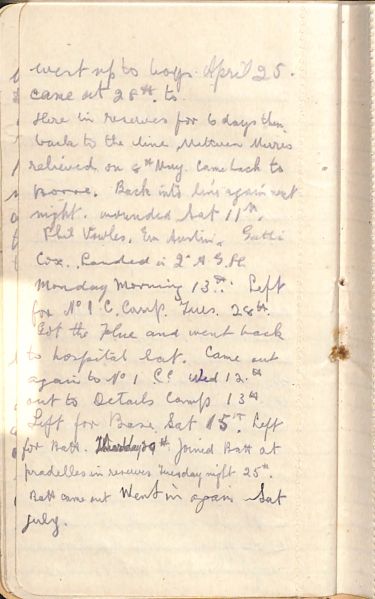 went up to boys April 25.
came out 28th. to
Here in reserves for 6 days then
back to the line Meteren Merris
relieved on 8th May. Came back to
Back into line again next
night. wounded Sat 11th,
Phil Vowles, Em Austin,
Cox. Landed in 2nd A G H
Monday Morning 13th. Left
for No 1. C. Camp. Tues. 28th.
Got the flue and went back
to hospital Sat. Came out
again to No 1 CC Wed 12th
out to Details Camp 13th
Left for Base Sat 15th. Left
for Batt. 9th Joined Batt at
pradelles in reserves Tuesday night 25th.
Batt came out Went in again Sat
July.